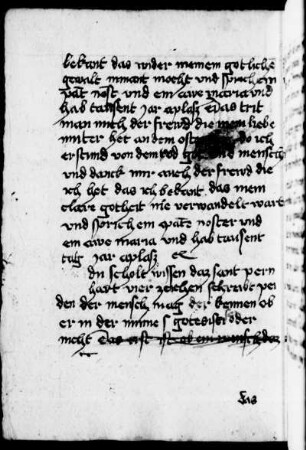 bekant das wider meinem gotliche
gewalt nimant mocht und sprich ein
pater nost und ein ave maria und
hab tausent jar aplasz Das trit
man mich der frewd die mein liebe
muter het an dem oster do ich
erstund von dem tod mensch
und danck mir auch der frewd die
ich het das ich bekant das mein
clare gotheit nie verwandelt ware
und sprich ein pater noster und
ein ave maria und hab tausent
tag jar aplasz
du scholt wissen daz sant pern
hart vier zeichen schreibt pei
den der mensch mag der kennen ob
er in der mine gotes ist oder
nicht Das erst ist ob ein mensch
Das